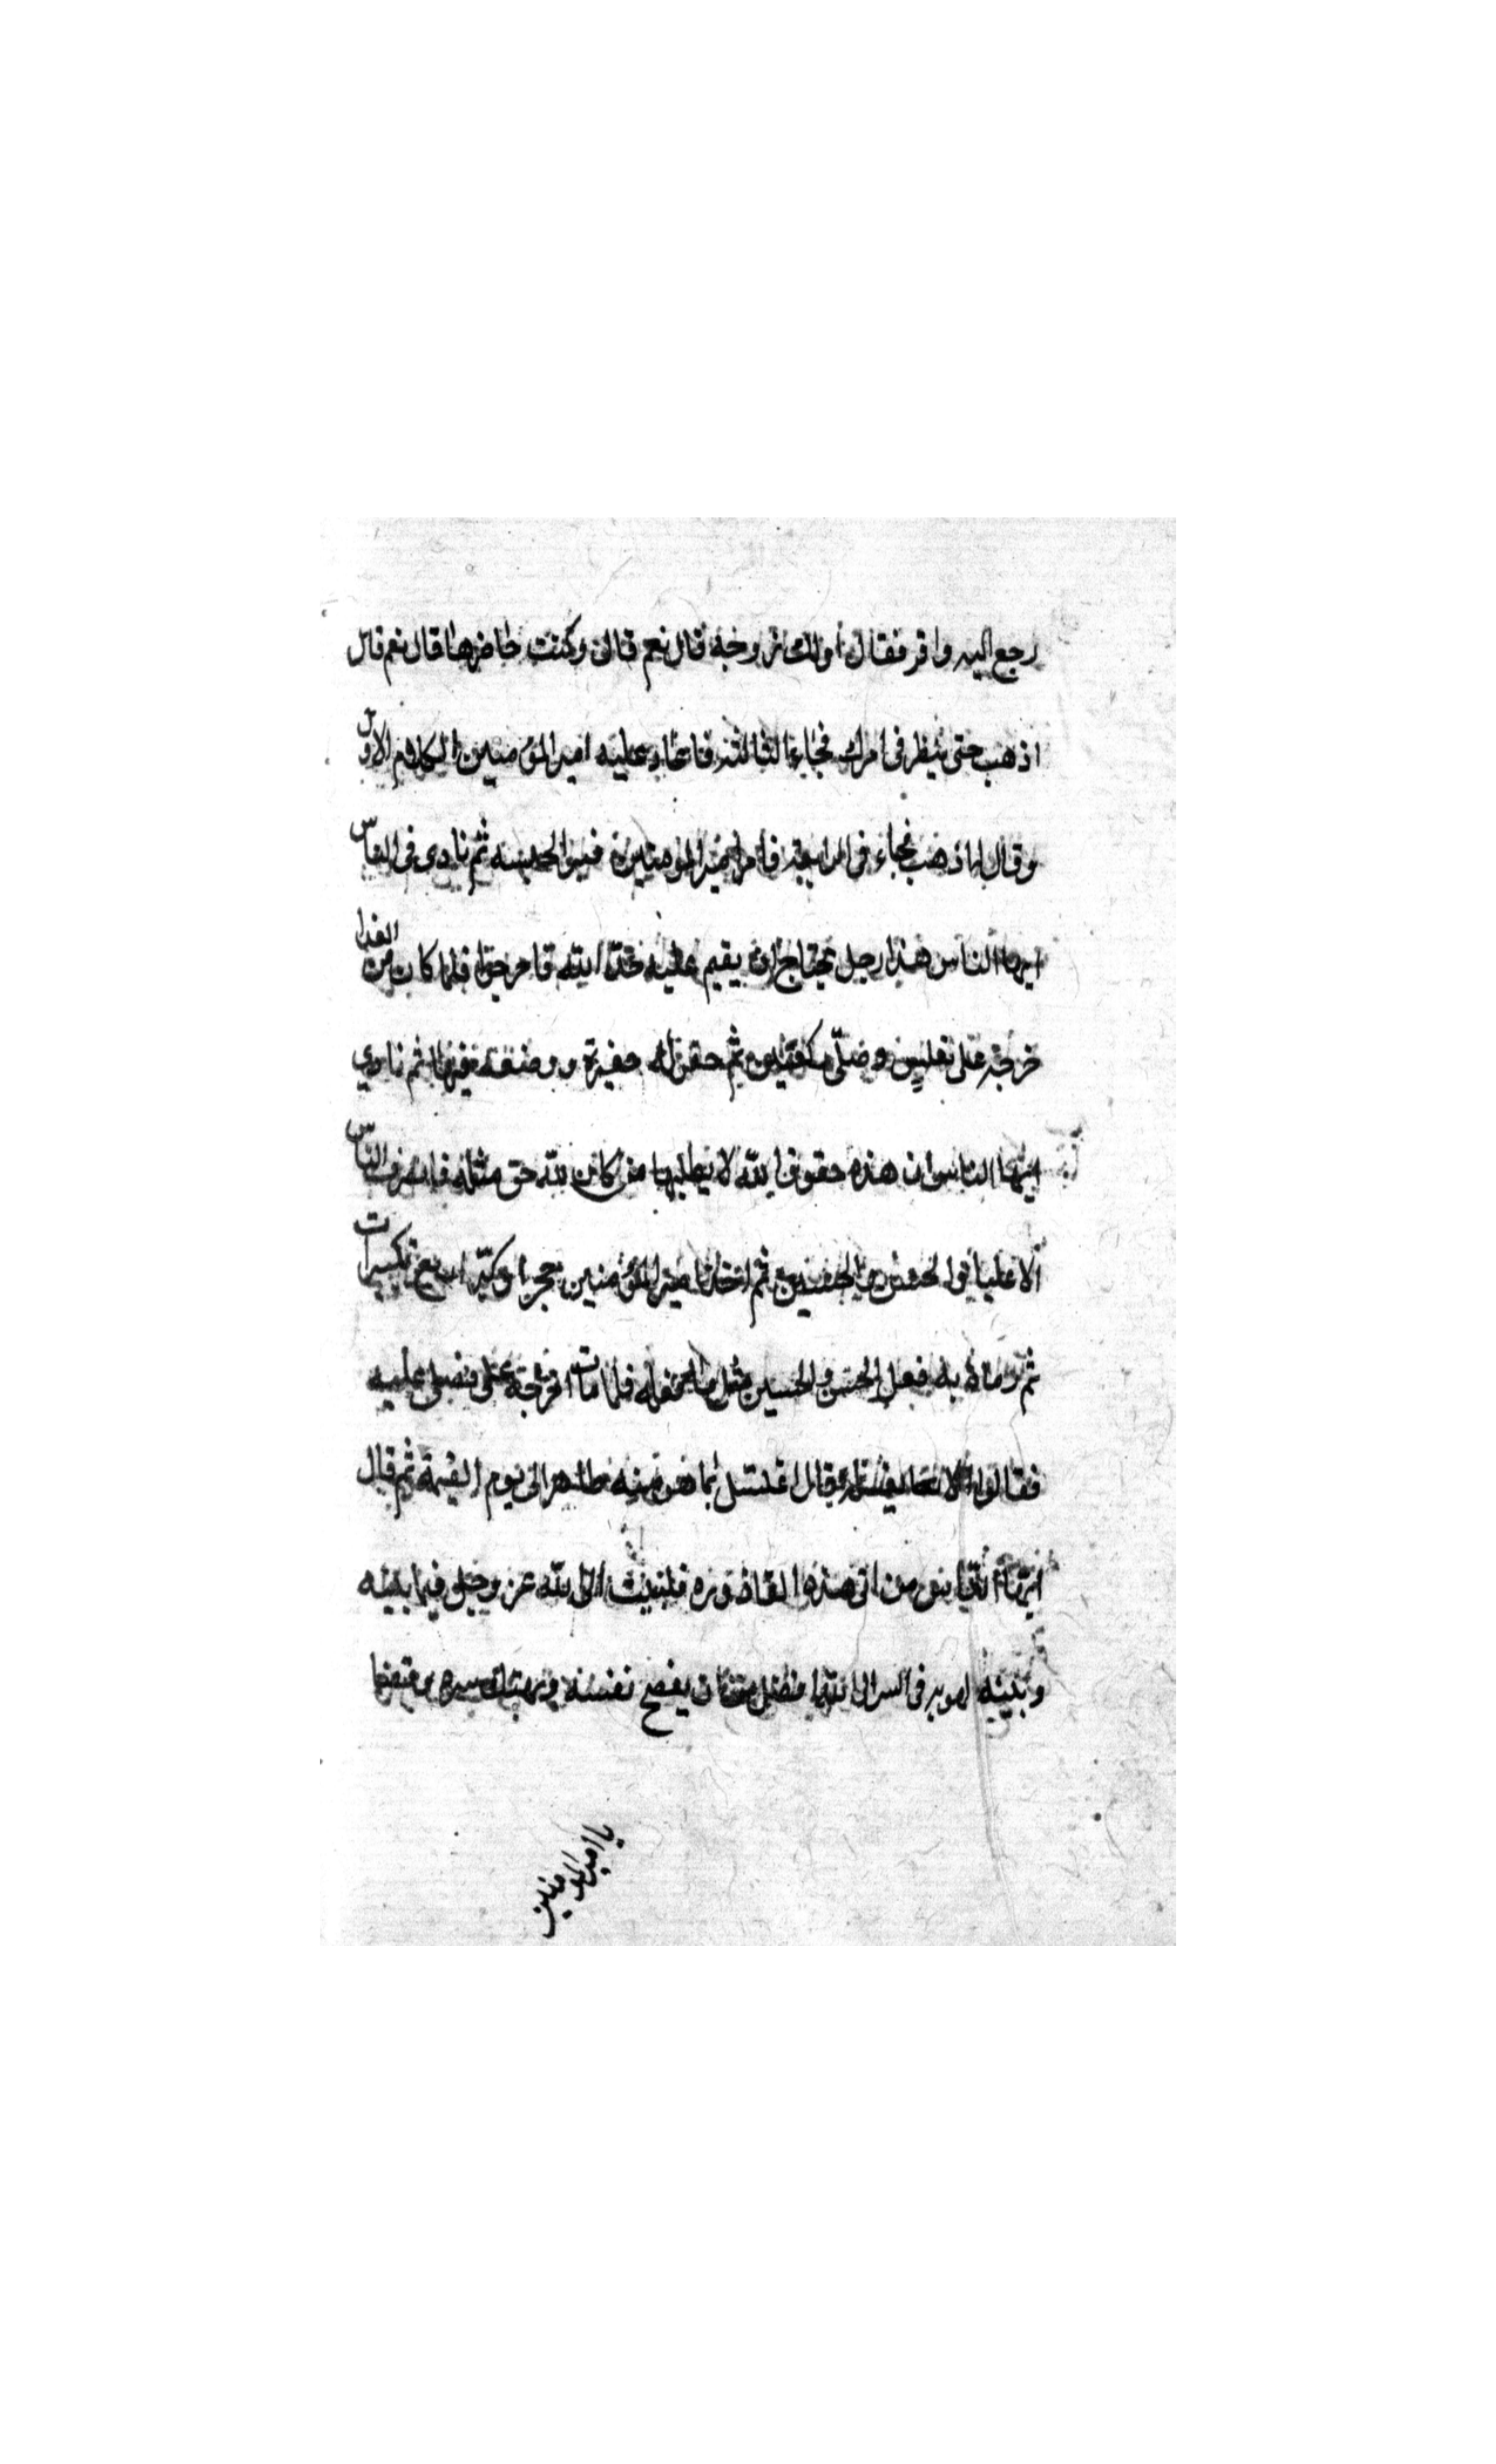 رجع اليه واقر فقال اولك زوجه قال نعم قال وكنت حاضرها قال نعم قال
اذهب حتى ننظر فى امرك فجاء الثالثة فاعاد عليه امير المؤمنين الكلام الاول
وقال اذهب فجاء فى الرابعة فامر امير المؤمنين فحبسه ثم نادى فى الناس
ايها الناس هذا رجل يحتاج ان يقيم عليه حدّ الله فاخرجوا فلما كان من الغد
خرج على نغليس وصلّى ركعتين ثم حفر له حفيرة ووضعه فيها ثم نادى
ايها الناس ان هذه حقوق الله لا يطلبها من كان لله حق مثله فانصرف الناس
الا عليا والحسن والحسين ثم اخذ امير المؤمنين حجرا وكبّر اربع تكبيرات
ثم رماه به فعل الحسن والحسين مثل ما فعله فلما مات اخرجه على فصلى عليه
فقالوا الا تغسله قال اغتسل بما هو منه طاهر الى يوم القيمة ثم قال
ايها الناس من اتى هذه القاذوره فليتب الى الله عز وجل فيما بينه
وبينه لتوبه فى السر الى الله افضل من ان يفضح نفسه ويهتك ستره
يا امير المؤمنين